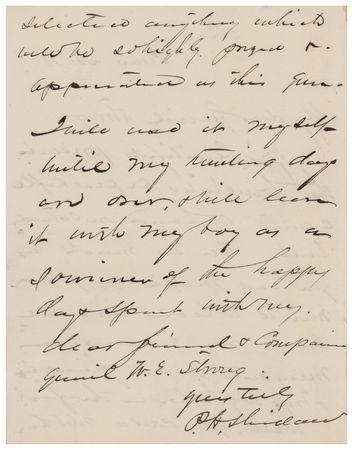 selected anything which
would be so highly prized &
appreciated as this gun.
I will use it myself
until my hunting days
are over, & will leave
it with my boy as a
souvenir of the happy
days spent with my
dear friend & Companion
Genl W. E. Strong.
yours truly
P. H. Sheridan